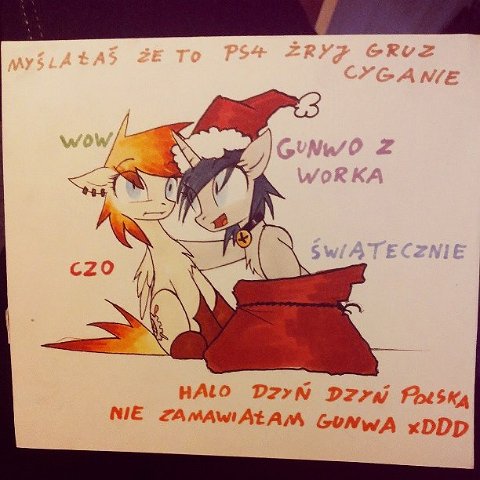 MYŚLAŁAŚ ŻE TO PS4 ŻRYJ GRUZ
CYGANIE
WOW
GUNWO Z
WORKA
ŚWIĄTECZNIE
CZO
HALO DZYŃ DZYŃ POLSKA
NIE ZAMAWIAŁAM GUNWA xDDD